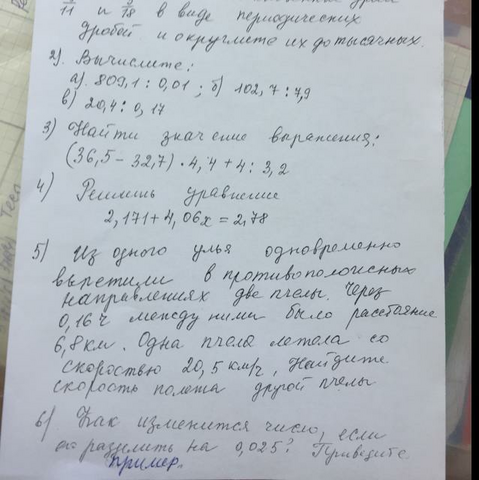 11 и 18 в виде периодических
дробей и округлите их до тысячных.
2). Вычислите:
а). 809,1 : 0,01 ; б) 102,7 : 7,9
в) 20,4 : 0,17
3) Найти значение выражения:
(36,5 – 32,7) · 4,4 + 4 : 3,2
4) Решить уравнение
2,171 + 4,06x = 2,78
5) Из одного улья одновременно
вылетили в противоположных
направлениях две пчелы. Через
0,16 ч между ними было расстояние
6,8 км. Одна пчела летела со
скоростью 20,5 км/ч, Найдите
скорость полета другой пчелы
6) Как изменится число, если
его разделить на 0,025? Приведите
пример.